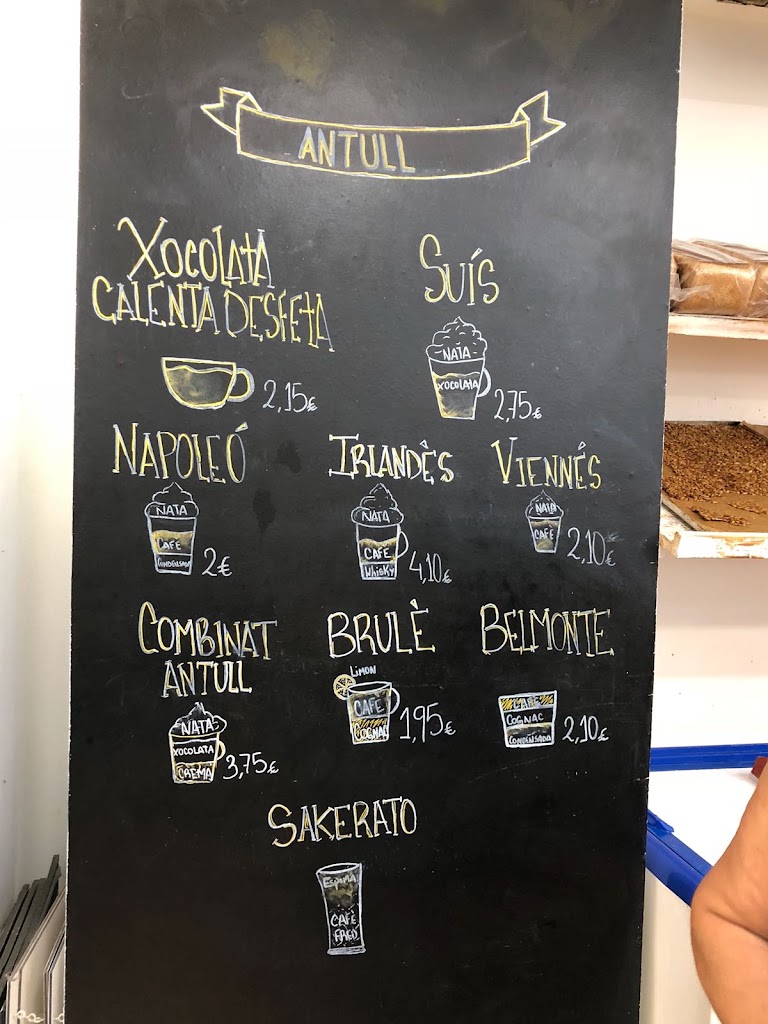 ANTULL
XOCOLATA
CALENTA DESFETA
2,15€
SUÍS
NATA
XOCOLATA
2,75€
NAPOLEÓ
NATA
CAFE
CONDENSADA
2€
IRLANDÊS
NATA
CAFE
WHISKY
4,10€
VIENNÉS
NATA
CAFE
2,10€
COMBINAT
ANTULL
NATA
XOCOLATA
CREMA
3,75€
BRULÈ
LIMON
CAFE
COGNAC
1,95€
BELMONTE
CAFE
COGNAC
CONDENSADA
2,10€
SAKERATO
ESPUMA
CAFÈ
FRED